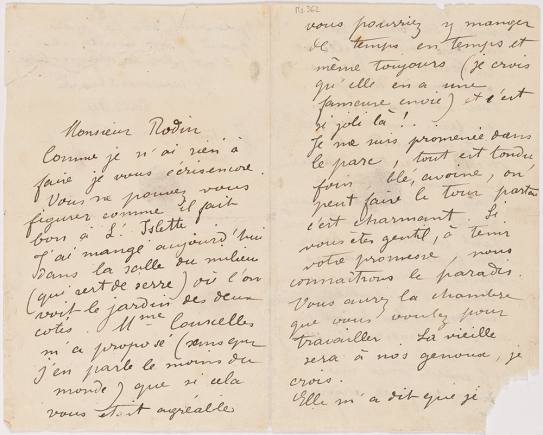 Monsieur Rodin
Comme je n'ai rien à
faire je vous écris encore.
Vous ne pouvez vous
figurer comme il fait
bon à L'Islette.
J'ai mangé aujourd'hui
dans la salle du milieu
(qui sert de serre) où l'on
voit le jardin des deux
cotés. Mme Courcelles
m'a proposé (sans que
j'en parle le moins du
monde) que si cela
vous était agréable
Ms.362
vous pourriez y manger
de temps en temps et
même toujours (je crois
qu'elle en a une
fameuse envie) et c'est
si joli là!..
Je me suis promenée dans
le parc, tout est tondu
foin, blé, avoine, on
peut faire le tour partout
c'est charmant. Si
vous êtes gentil, à tenir
votre promesse, nous
connaîtrons le paradis.
Vous aurez la chambre
que vous voulez pour
travailler. La vieille
sera à nos genoux, je
crois.
Elle m'a dit que je